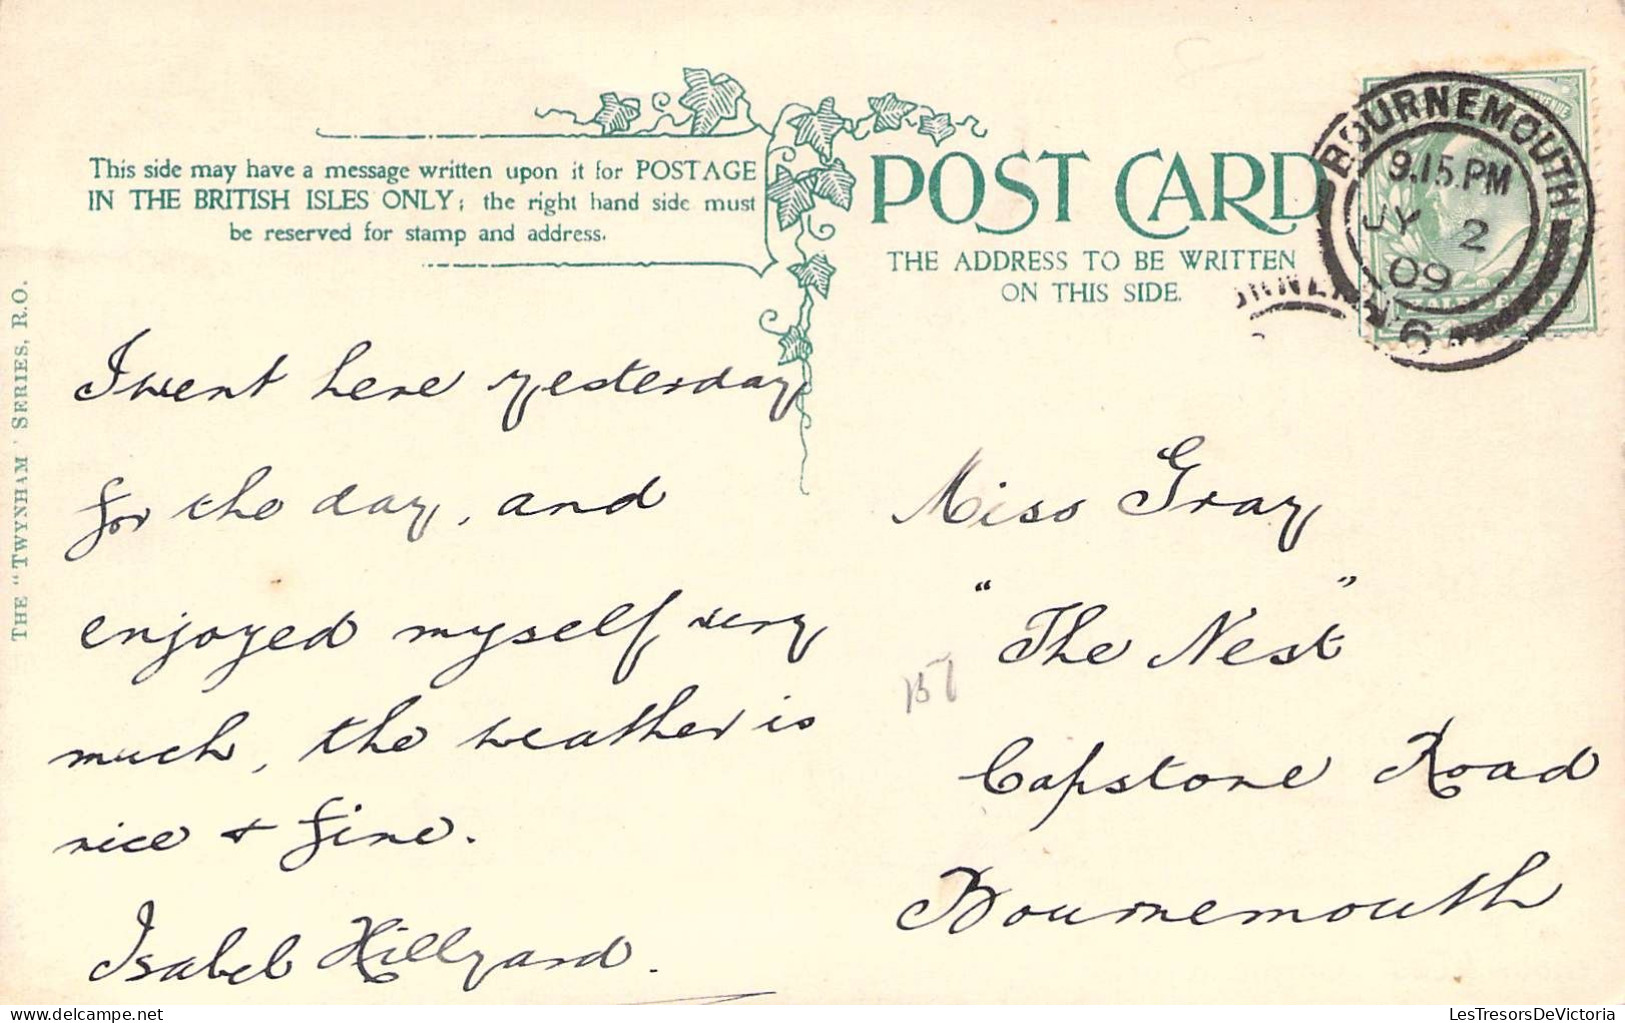 This side may have a message written upon it for POSTAGE
IN THE BRITISH ISLES ONLY; the right hand side must
be reserved for stamp and address.
POST CARD
THE ADDRESS TO BE WRITTEN
ON THIS SIDE.
BOURNEMOUTH
9.15 PM
JY 2
09
6
THE "TWYNHAM" SERIES, R.O.
I went here yesterday
for the day, and
enjoyed myself very
much, the weather is
nice & fine.
Isabel Hillyard.
Miss Gray
"The Nest"
Capstone Road
Bournemouth
LesTresorsDeVictoria